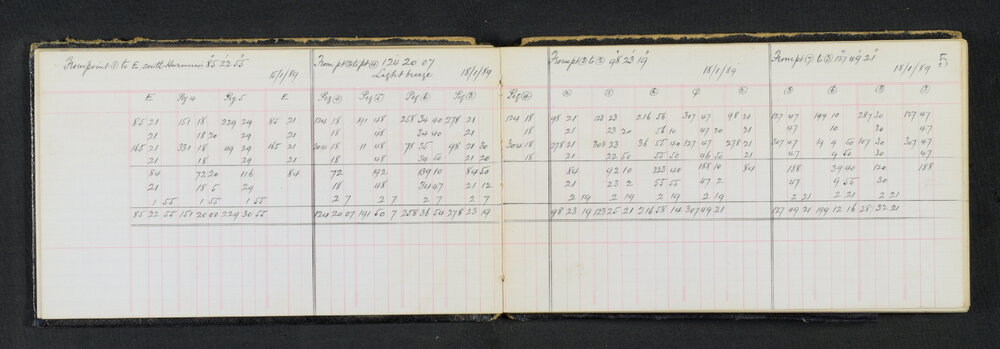 From point ① to E. south 85 22 55
15/1/89
E Peg 4 Peg 5 E
85 21 151 18 229 29 85 21
21 18 20 29 21
165 21 331 18 49 29 165 21
21 18 29 21
84 72 20 116 84
21 18 5 29
1 55 1 55 1 55
85 22 55 151 20 00 229 30 55
From pt ③ to pt ④ 124 20 07
Light breeze 18/1/89
Peg ④ Peg ⑤ Peg ⑥ Peg ③ Peg ④
124 18 191 48 258 34 40 278 21 124 18
18 48 34 40 21 18
304 18 11 48 78 35 98 21 30 304 18
18 48 34 50 21 20 18
72 192 139 10 84 50
18 48 34 47 21 12
2 7 2 7 2 7 2 7
124 20 07 191 50 7 258 36 54 278 23 19
From pt ② to ③ 98 23 19
18/1/89
98 21 123 23 216 56 307 47 98 21
21 23 20 56 10 47 20 21
278 21 303 23 36 55 40 127 47 278 21
21 22 50 55 50 46 50 21
84 92 10 223 40 188 10 84
21 23 2 55 55 47 2
2 19 2 19 2 19 2 19
98 23 19 123 25 21 216 58 14 307 49 21
From pt ⑦ to ③ 127 49 21
18/1/89
5
127 47 199 10 287 30 127 47
47 10 30 47
307 47 19 9 50 107 30 307 47
47 9 50 30 47
188 39 40 120 188
47 9 55 30
2 21 2 21 2 21
127 49 21 199 12 16 287 32 21